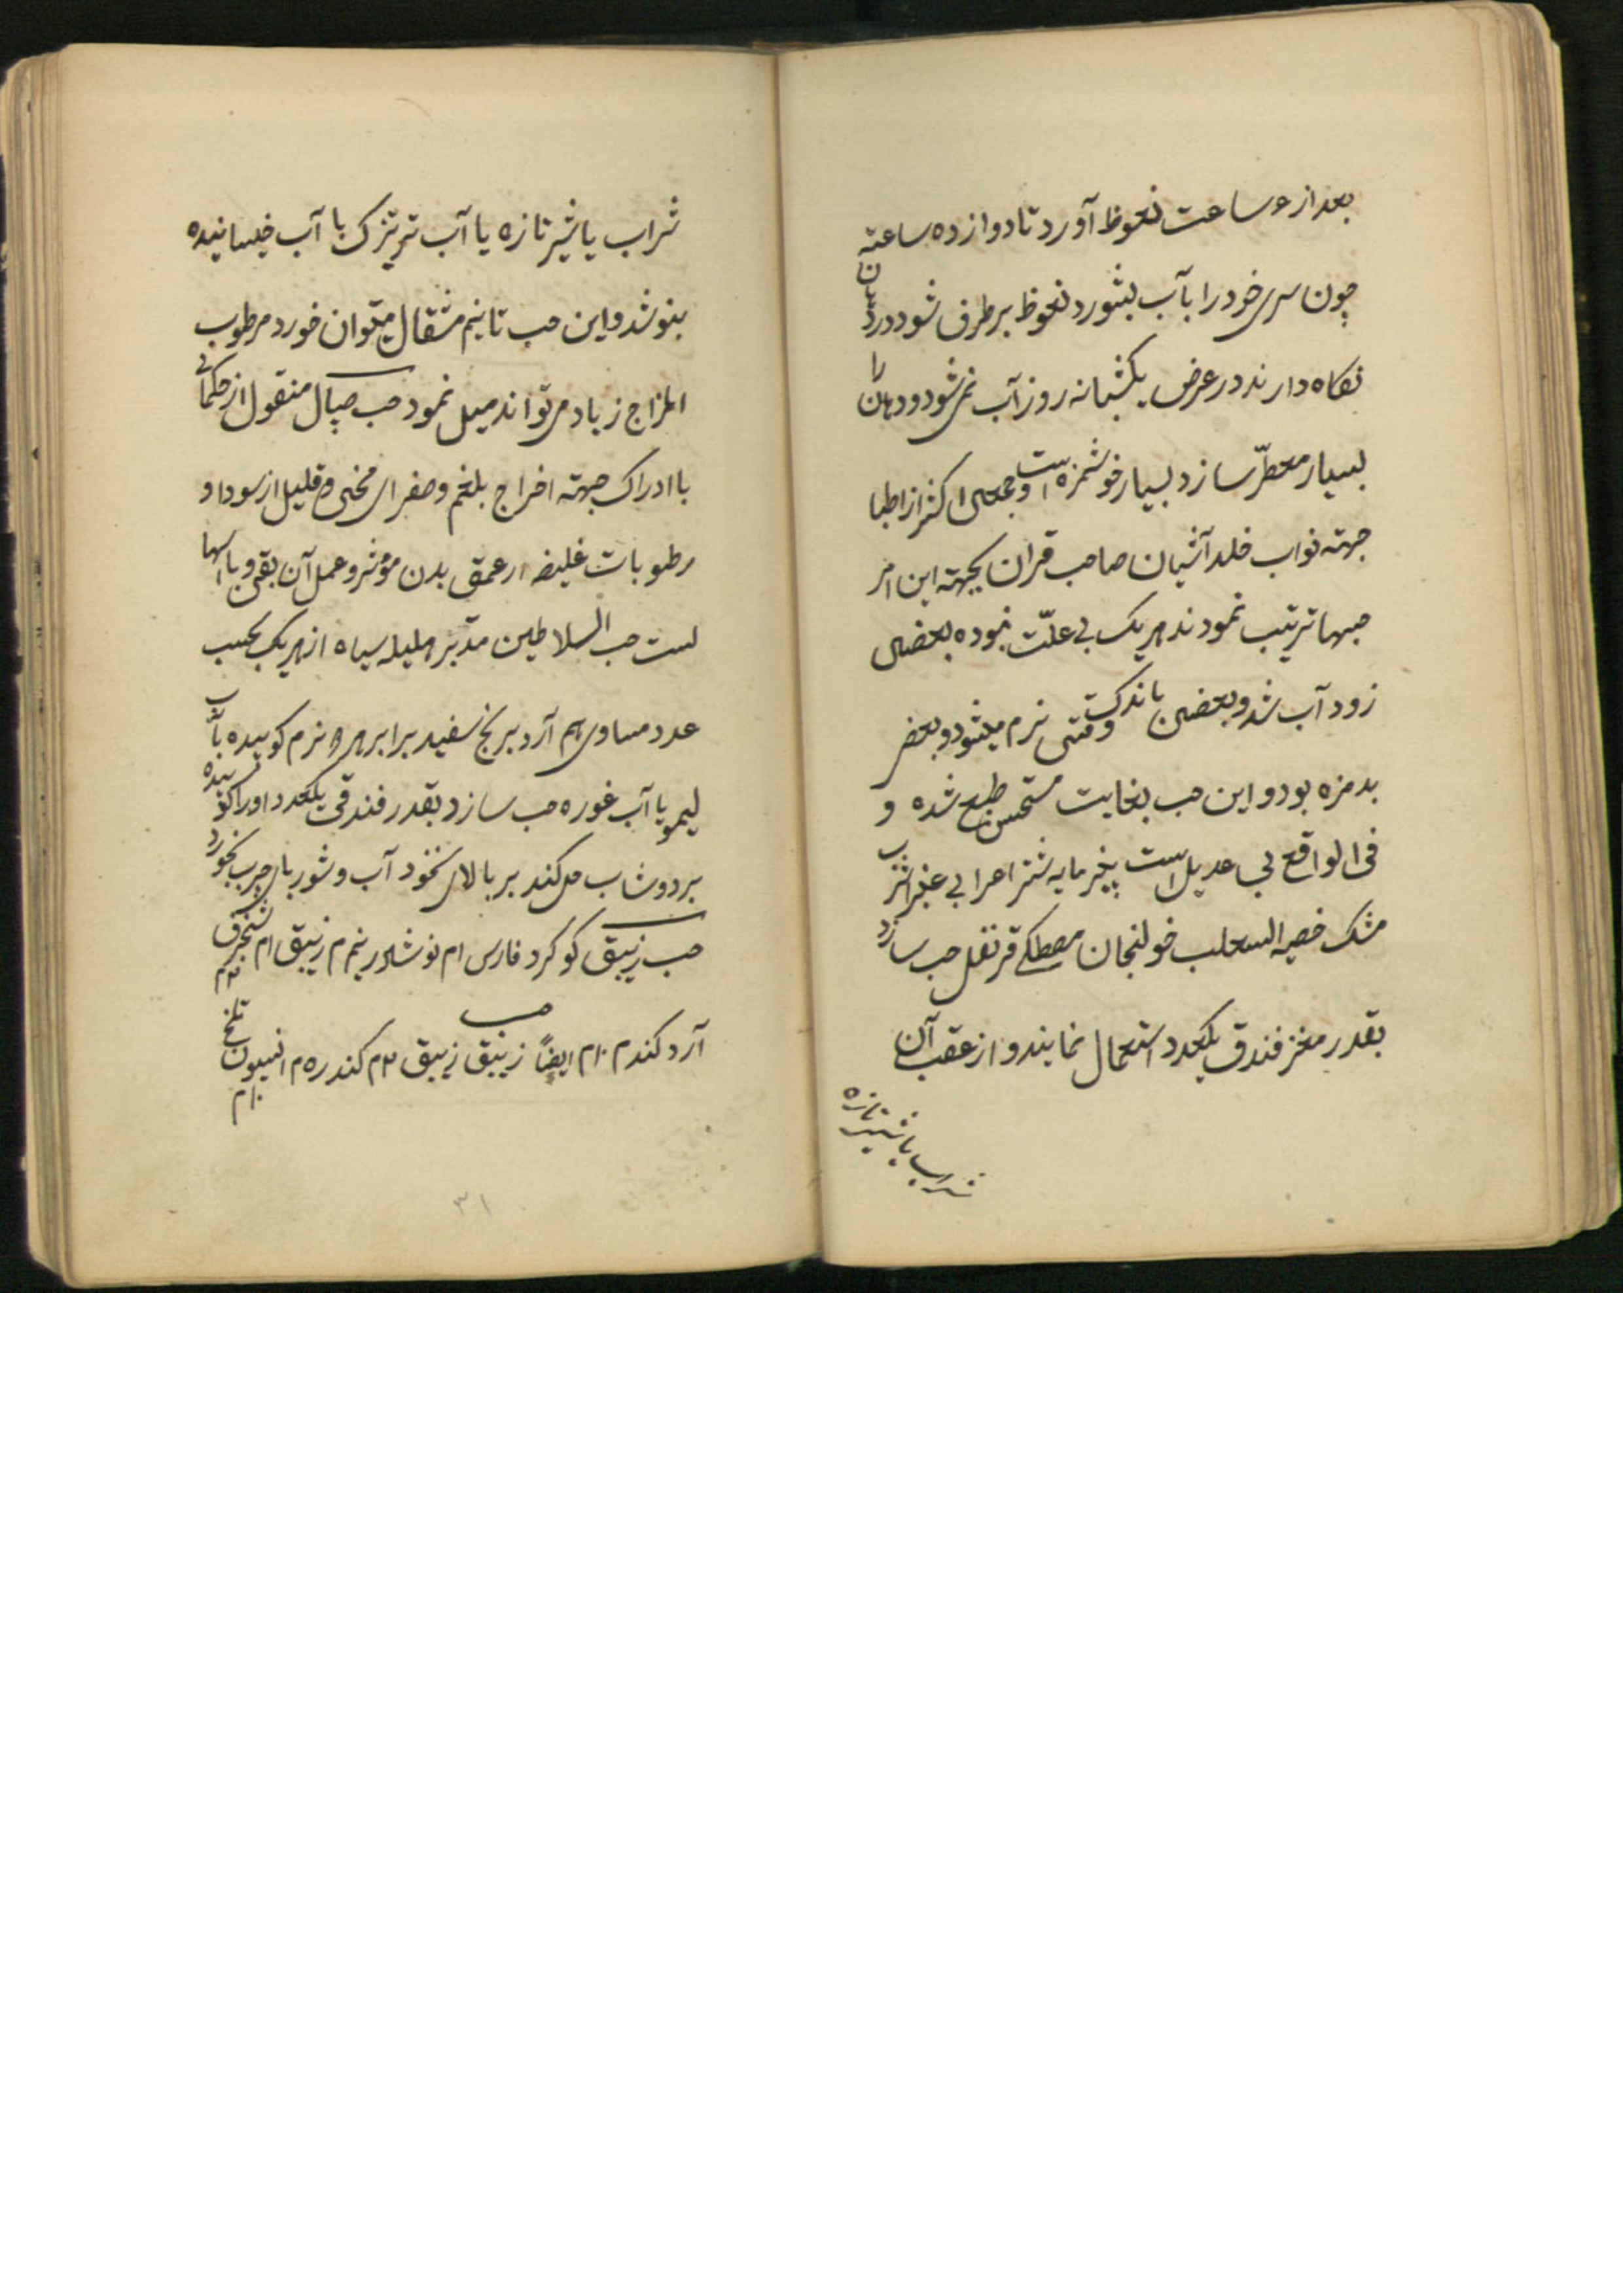 بعد از ۶ ساعت نعوظ آورد تا دوازده ساعته
چون سری خود را بآب بشورد نعوظ برطرف شود و در دهان
نکاه دارند در عرض یکشبانه روز آب نمی شود و دهان را
بسیار معطّر سازد بسیار خوشمزه است و جمعی اکثر از اطبا
جهته نواب خلد آشیان صاحب قران بجهته این امر
حبها ترتیب نمودند هر یک بی علّت نبوده بعضی
زود آب شد و بعضی باندک وقتی نرم میشود و بعضی
بدمزه بود و این حب بغایت مستحسن طبع شده و
فی الواقع بی عدیل است پنیر مایه شتر اعرابی عنبر اشهب
مشک خصیه الثعلب خولنجان مصطکی قرنفل حب سازد
بقدر مغز فندق یکعدد استعمال نمایند و از عقب آن
شراب یا شیر تازه
شراب یا شیر تازه یا آب ترتیزک یا آب خیسانیده
بنوشد و این حب تا نیم مثقال میتوان خورد مرطوب
المزاج زیاد می تواند میل نمود حب صپال منقول از حکمای
با ادراک جهته اخراج بلغم و صفرای مخی و قلیل از سودا و
رطوبات غلیضه از عمق بدن مؤثر و عمل آن بقی و باسها
لست حب السلاطین مدبر هلیله سیاه از هر یک بحسب
عدد مساوی هم آرد برنج سفید برابر همه نرم کوبیده بآب
لیمو یا آب غوره حب سازد بقدر فندقی یکعدد او را کوبیده
بر دوشاب حل کند بر بالای نخود آب و شوربای چرب بخورد
حب زیبق کوکرد فارسی ۱م نوشادر نیم م زیبق ۱م شنجرف ۳م
آرد کندم ۱۰م ایضاً حب زیبق زیبق ۳م کندر ۵م افسیون تلخ ۱۰م
۳۱